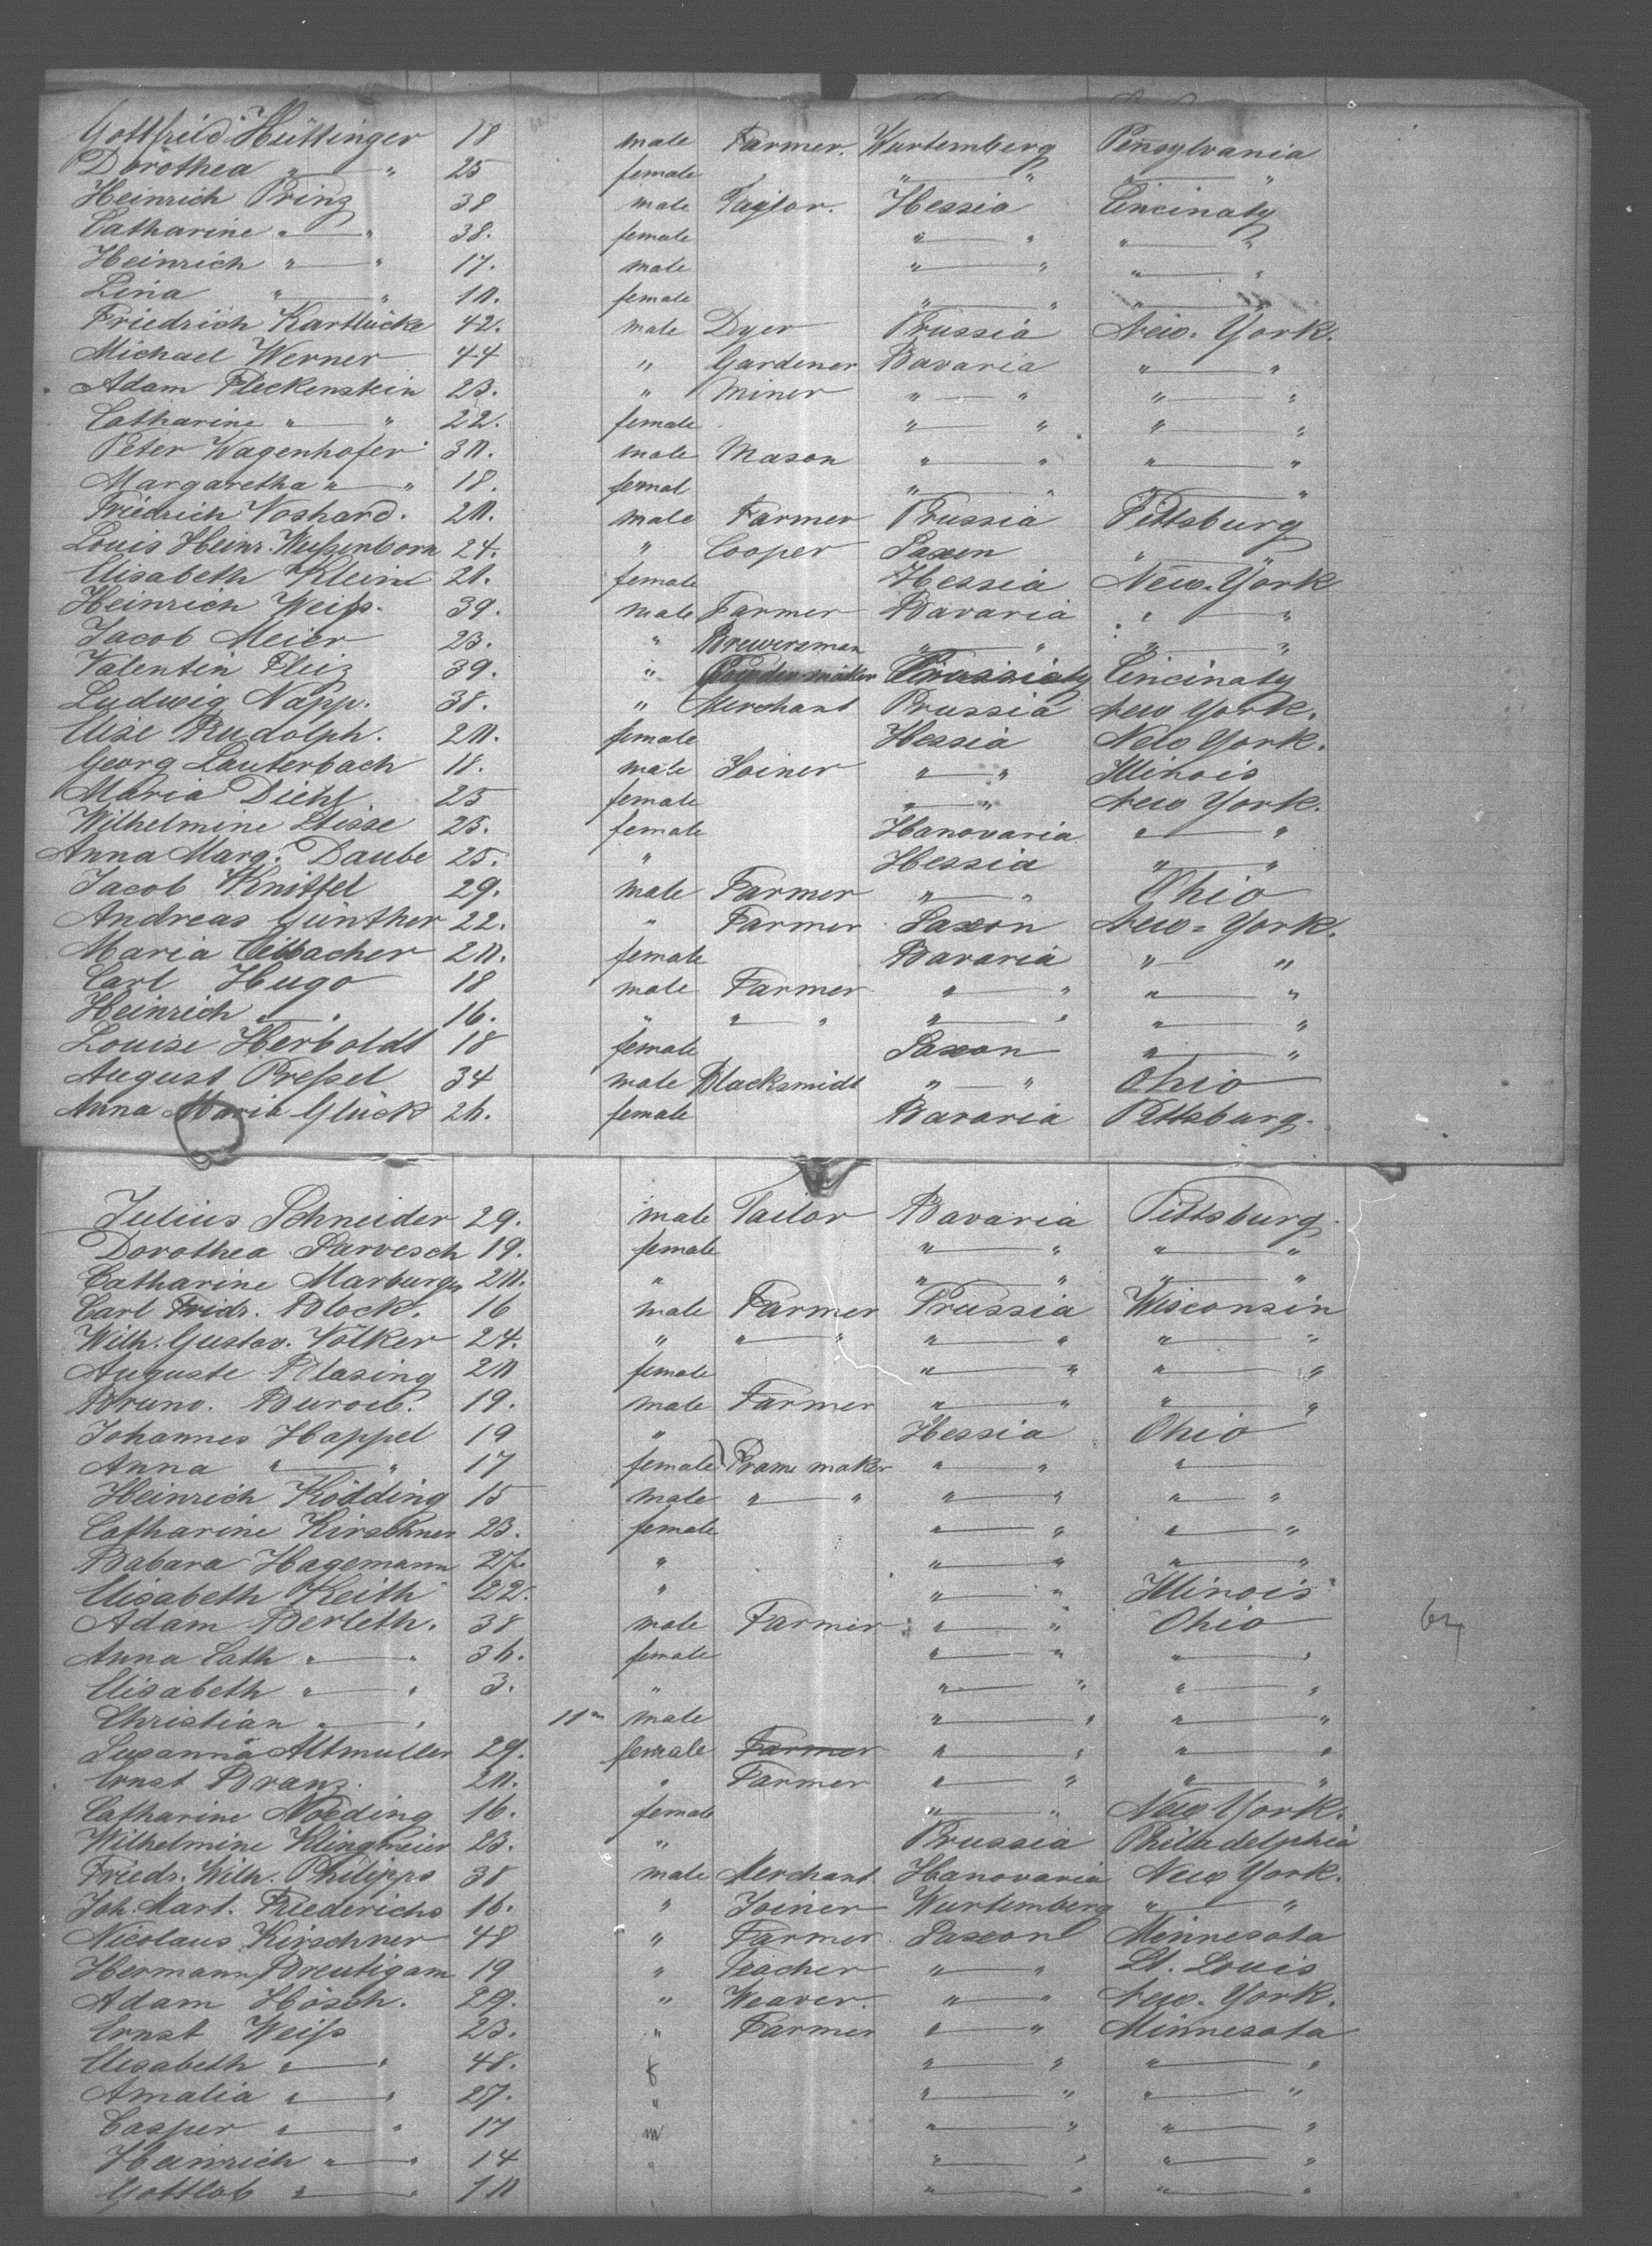 Gottfried Hüttinger 18 male Farmer. Wurtemberg Pennsylvania
Dorothea " — " 25 female " — " " — "
Heinrich Prinz 38 male Tailor. Hessia Cincinaty
Catharine " — " 38. female " — " " — "
Heinrich " — " 17. male " — " " — "
Lina " — " 10. female " — " " — "
Friedrich Kartlücke 42. male Dyer Prussia New-York.
Michael Werner 44 " Gardener Bavaria " — "
Adam Fleckenstein 23. " Miner " — " " — "
Catharine " — " 22. female " — " " — "
Peter Wagenhofer 30. male Mason " — " " — "
Margaretha " — " 18. femal " — " " — "
Friedrich Voshard. 20. male Farmer Prussia Pittsburg
Louis Heinr. Weißenborn 24. " Cooper Saxen " — "
Elisabeth Klein 21. female Hessia New-York
Heinrich Weiß. 39. male Farmer Bavaria " — "
Jacob Meier 23. " Brewersman " — " " — "
Valentin Fleiz 39. " Cincinaty
Ludwig Napp. 38. " Merchant Prussia New York.
Elise Rudolph. 20. female Hessia New York.
Georg Lauterbach 18. male Joiner " — " Illinois
Maria Diehl. 25 female " — " New York.
Wilhelmine 23. female Hanovaria " — "
Anna Marg. Daube 25. " Hessia " — "
Jacob Knittel 29. male Farmer " — " Ohio
Andreas Günther 22. " Farmer Saxon New-York.
Maria Eibacher 20. female Bavaria " "
Carl Hugo 18 male Farmer " — " " — "
Heinrich " — " 16. " " — " " — " " — "
Louise Herboldt 18 female Saxon " — "
August Preßel 34 male Blacksmidt " — " Ohio
Anna Maria Glück 26. female Bavaria Pittsburg.
Julius Schneider 29. male Tailor Bavaria Pittsburg.
Dorothea Sarvesch 19. female " — " " — "
Catharine Marburger 20. " " — " " — "
Carl Fridr. Block. 16 male Farmer Prussia Wisconsin
Wilh. Gustav. Völker 24. " " — " " — " " — "
Auguste Blasing 20 female " — " " — "
Bruno. 19. male Farmer " — " " — "
Johannes Happel 19 " Hessia Ohio
Anna " — " 17 female maker " — " " —
Heinrich Ködding 15 male " — " " — " " — "
Catharine Kirschner 23. female " — " " — "
Babara Hagemann 27. " " — " " — "
Elisabeth Keith 22. " " — " Illinois
Adam Berleth. 38 male Farmer " — " Ohio
Anna Cath " — " 36. female " — " " — "
Elisabeth " — " 3. " " — " " — "
Christian " — " 11m male " — " " — "
Susanna Altmuller 29. female Farmer " — " " — "
Ernst Branz. 20. " Farmer " — " " — "
Catharine Noeding 16. female " — " New York.
Wilhelmine Klingmeier 23. " Prussia Philadelphia
Friedr. Wilh. Philipps 38 male Merchant Hanovaria New York.
Joh. Mart. Friederichs 16. " Joiner Wurtemberg " — "
Nicolaus Kirschner 48 " Farmer Saxon Minnesota
Hermann Breutigam 19 " Teacher " — " St. Louis
Adam Hösch. 29. " Weaver. " — " New-York.
Ernst Weiß 23. " Farmer " — " Minnesota
Elisabeth " — " 48. f " — " " — "
Amalia " — " 27. " " — " " — "
Casper " — " 17 m " — " " — "
Heinrich " — " 14 " " — " " — "
Gottlob " — " 10 " " — " " — "